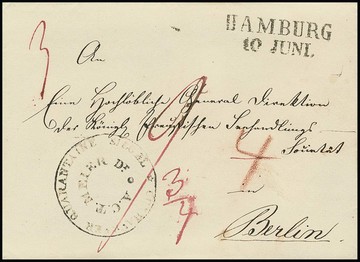 HAMBURG
10 JUNI.
3
An
Eine Hochlöbliche General Direktion
der Königl Preussischen Seehandlungs
Societät
4
in
3/4
Berlin.
QUARANTAINE SIEGEL
A.C.P. MEIER Dr.